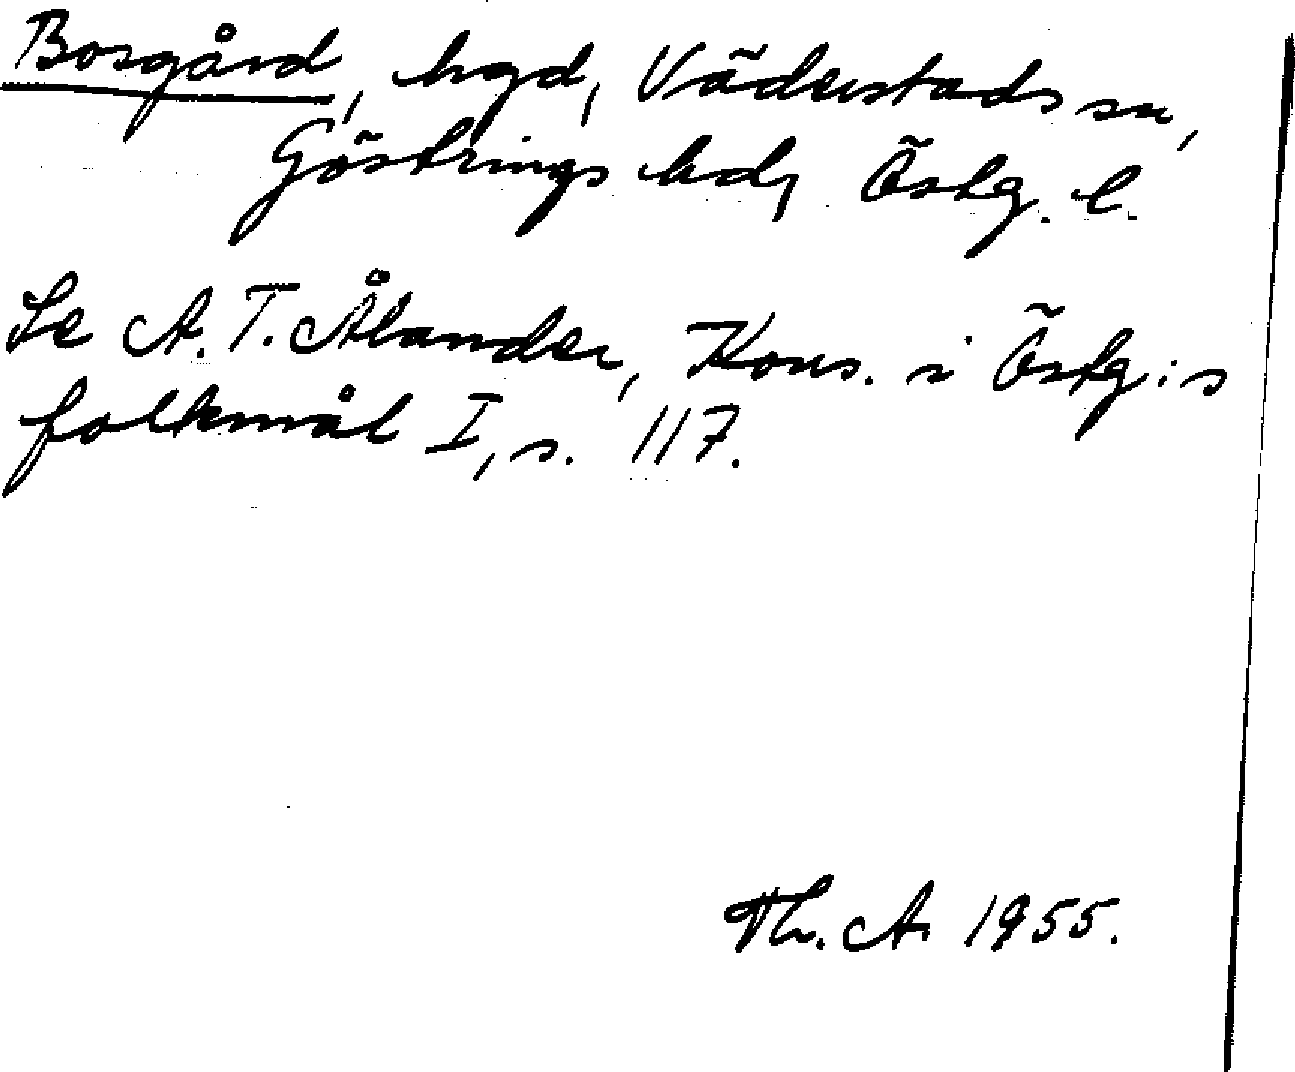 Bosgård, hgd, Väderstads sn,
Göstrings hd, Östg. l.
Se A. T. Ålander, Kons. i Östg:s
folkmål I, s. 117.
Th. A. 1955.